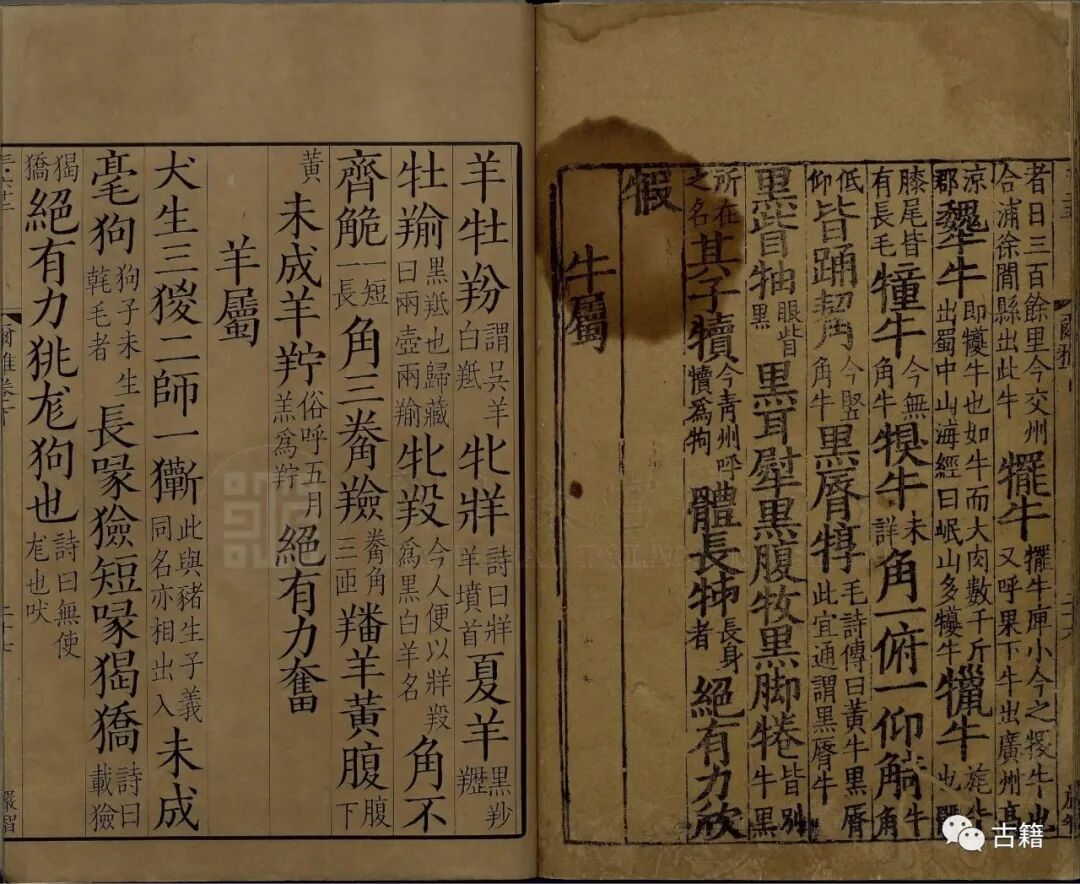 者日三百餘里今交州合浦徐聞縣出此牛犤牛犤牛庳小今之㹀牛也又呼果下牛出廣州高
涼郡犩牛即犪牛也如牛而大肉數千斤出蜀中山海經曰岷山多犪牛犣牛旄牛也髀
膝尾皆有長毛犝牛今無角牛犑牛未詳角一俯一仰觭牛角
低仰皆踊觢今豎角牛黑脣犉毛詩傳曰黃牛黑脣此宜通謂黑脣牛
黑眥牰眼眥黑黑耳犚黑腹牧黑脚犈皆別牛黑
所在之名其子犢今青州呼犢為㸬體長牬長身者絕有力欣
犌
牛屬
羊牡羒謂吳羊白羝牝牂詩曰牂羊墳首夏羊黑羖䍽
牡羭黑羝也歸藏曰兩壺兩羭牝羖今人便以牂羖為黑白羊名角不
齊觤一短一長角三觠羷觠角三匝羳羊黃腹腹下
黃未成羊羜俗呼五月羔為羜絕有力奮
羊屬
犬生三猣二師一玂此與豬生子義同名亦相出入未成
毫狗狗子未生𠏉毛者長喙獫短喙猲獢詩曰載獫
猲獢絕有力狣尨狗也詩曰無使尨也吠
爾雅卷下 二十七
古籍